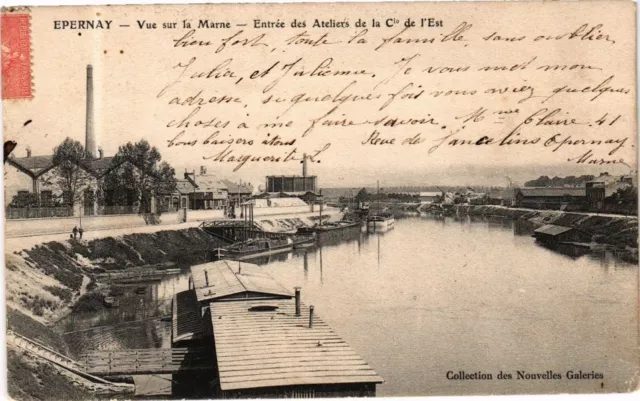 EPERNAY — Vue sur la Marne — Entrée des Ateliers de la Cie de l'Est
bien fort, toute la famille, sans oublier
Julia, et Julienne. Je vous met mon
adresse, si quelques fois vous aviez quelques
choses à me faire savoir. Mme Claire 41
bons baisers à tous Rue de Jancelins Epernay
Marguerite L. Marne
Collection des Nouvelles Galeries